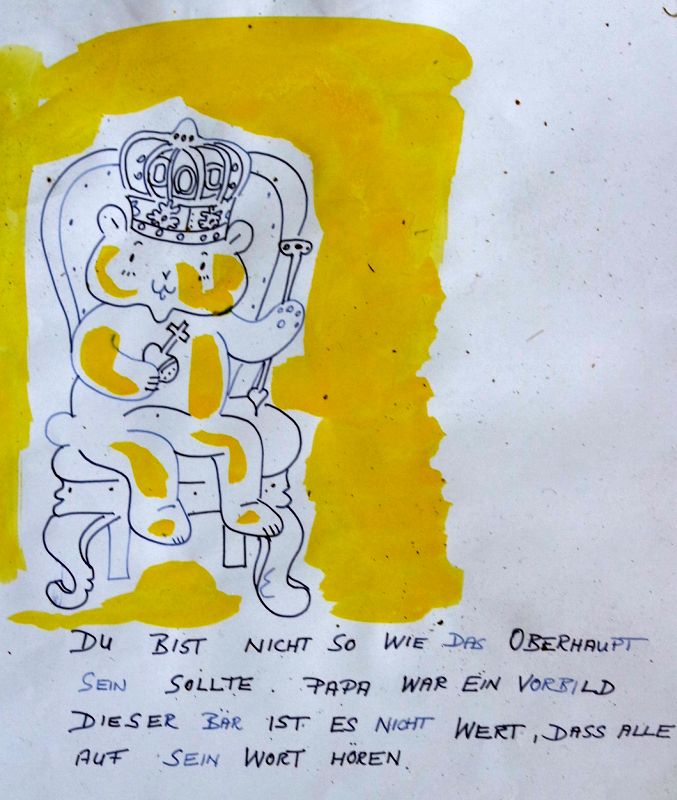 DU BIST NICHT SO WIE DAS OBERHAUPT
SEIN SOLLTE. PAPA WAR EIN VORBILD
DIESER BÄR IST ES NICHT WERT, DASS ALLE
AUF SEIN WORT HÖREN.